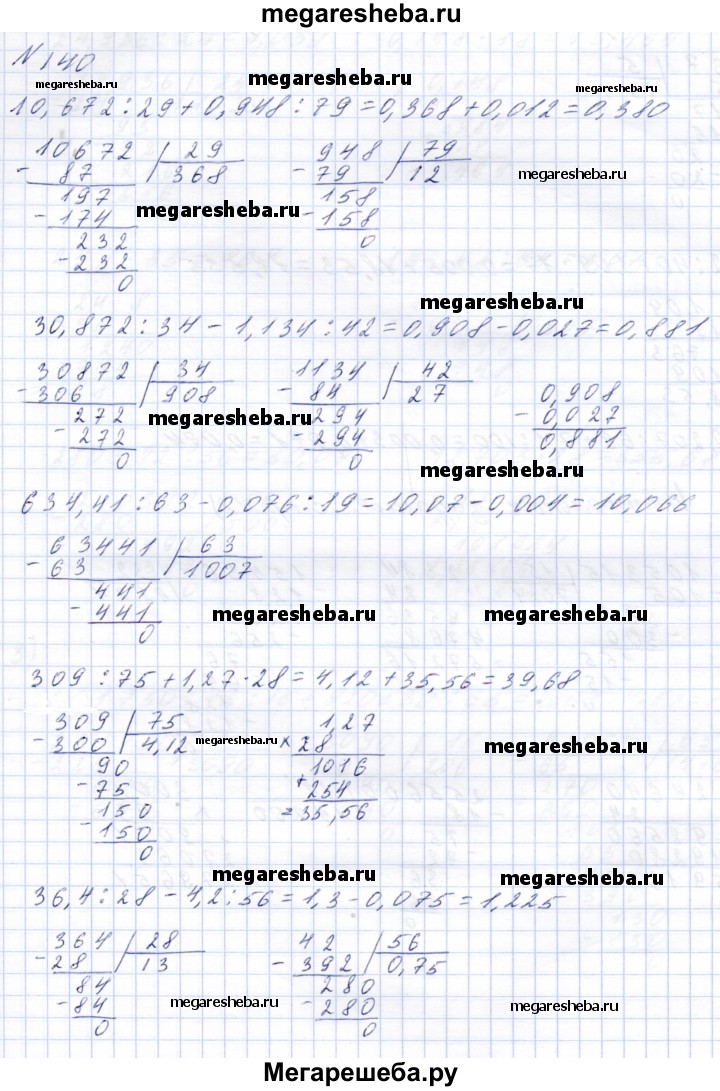 megaresheba.ru
N 140
megaresheba.ru
megaresheba.ru
megaresheba.ru
10,672 : 29 + 0,948 : 79 = 0,368 + 0,012 = 0,380
10672 | 29
- 87 | 368
197
- 174
232
- 232
0
948 | 79
- 79 | 12
158
- 158
0
megaresheba.ru
megaresheba.ru
megaresheba.ru
30,872 : 34 - 1,134 : 42 = 0,908 - 0,027 = 0,881
30872 | 34
- 306 | 908
272
- 272
0
1134 | 42
- 84 | 27
294
- 294
0
0,908
- 0,027
0,881
megaresheba.ru
megaresheba.ru
634,41 : 63 - 0,076 : 19 = 10,07 - 0,004 = 10,066
63441 | 63
- 63 | 1007
441
- 441
0
megaresheba.ru
megaresheba.ru
309 : 75 + 1,27 · 28 = 4,12 + 35,56 = 39,68
309 | 75
- 300 | 4,12
90
- 75
150
- 150
0
megaresheba.ru
1,27
× 28
1016
+ 254
= 35,56
megaresheba.ru
megaresheba.ru
megaresheba.ru
36,4 : 28 - 4,2 : 56 = 1,3 - 0,075 = 1,225
364 | 28
- 28 | 13
84
- 84
0
42 | 56
- 392 | 0,75
280
- 280
0
megaresheba.ru
megaresheba.ru
Мегарешеба.ру